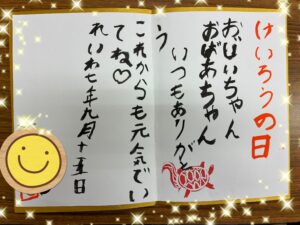 けいろうの日
おじいちゃん
おばあちゃん
いつもありがと
う
これからも元気でい
てね♡
れいわ七年九月十五日